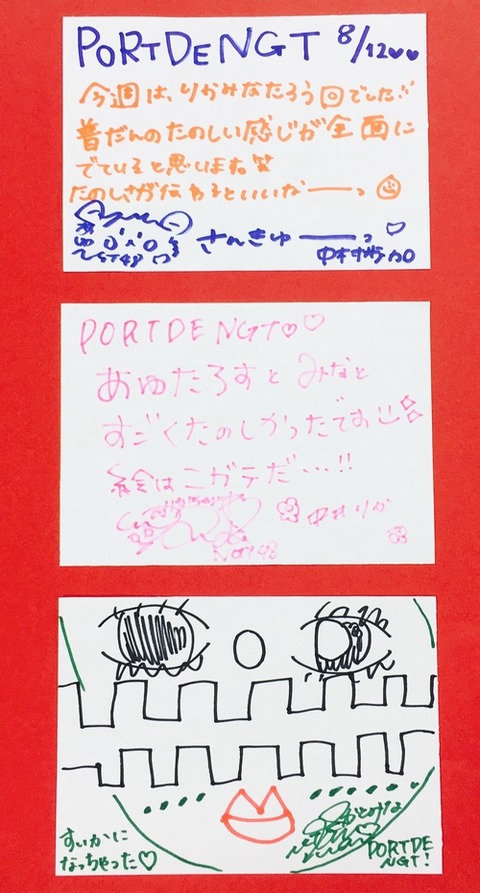 PORTDENGT 8/12♥♥
今週は、りかみなたろう回でした!!
普だんのたのしい感じが全面に
でていると思いますね笑
たのしさが伝わるといいなーーっ
NGT48 さんきゅーーっ
PORTDENGT♡♡
あゆたろすとみなと
すごくたのしかったです
絵はニガテだ…!!
中井りか
NGT48
すいかに
なっちゃった♡
PORTDE
NGT!